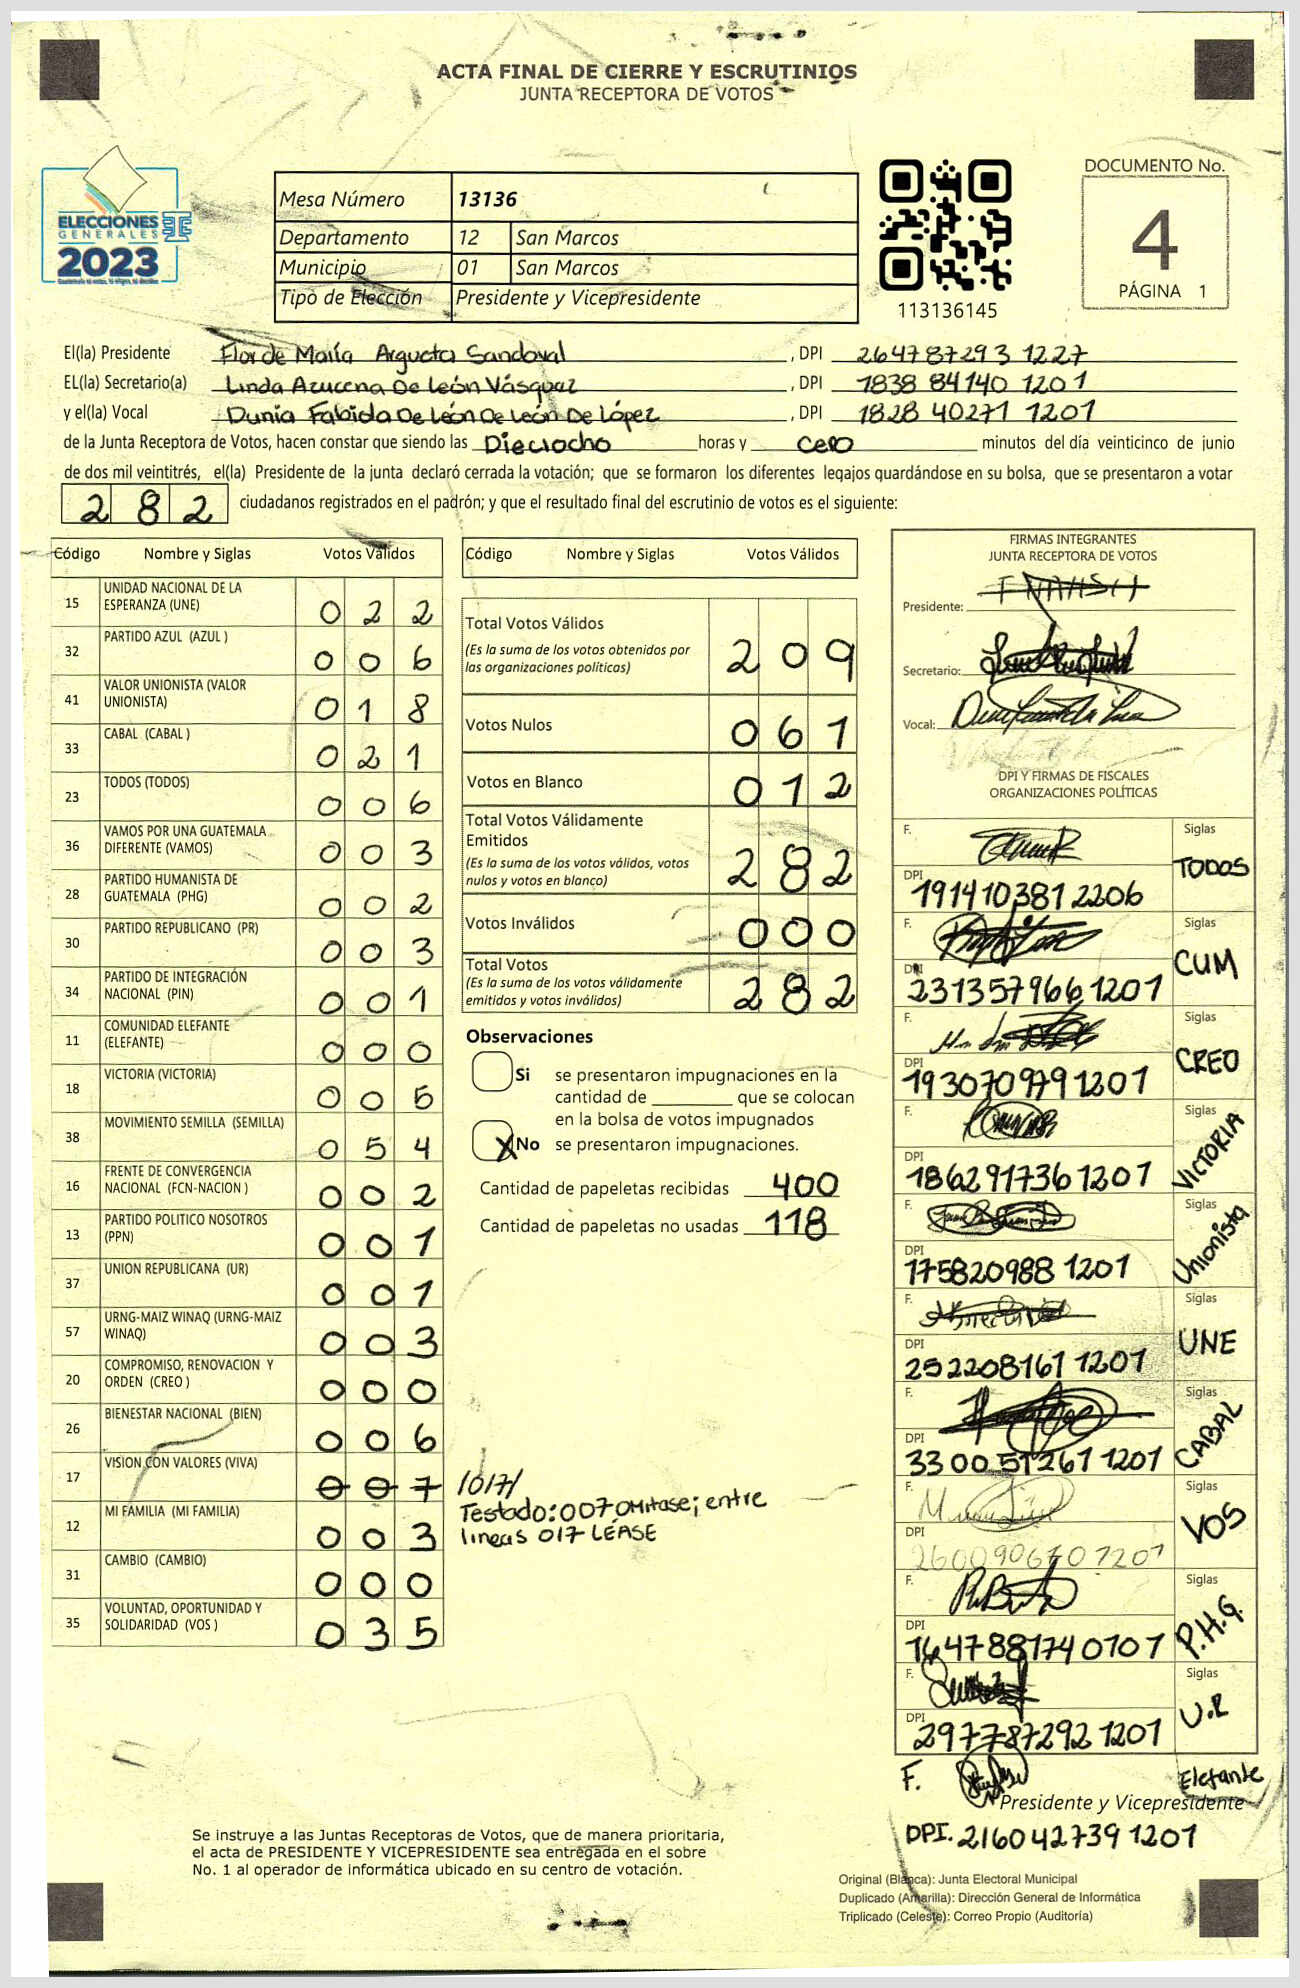 ACTA FINAL DE CIERRE Y ESCRUTINIOS
JUNTA RECEPTORA DE VOTOS
ELECCIONES
GENERALES
2023
Mesa Número 13136
Departamento 12 San Marcos
Municipio 01 San Marcos
Tipo de Elección Presidente y Vicepresidente
113136145
DOCUMENTO No.
4
PÁGINA 1
El(la) Presidente Flor de María Argueta Sandoval , DPI 264787293 1227
EL(la) Secretario(a) Linda Azucena De León Vásquez , DPI 1838 84140 1201
y el(la) Vocal Dunia Fabiola De León De León De López , DPI 1828 40271 1201
de la Junta Receptora de Votos, hacen constar que siendo las Dieciocho horas y cero minutos del día veinticinco de junio
de dos mil veintitrés, el(la) Presidente de la junta declaró cerrada la votación; que se formaron los diferentes legajos guardándose en su bolsa, que se presentaron a votar
282 ciudadanos registrados en el padrón; y que el resultado final del escrutinio de votos es el siguiente:
Código Nombre y Siglas Votos Válidos
15 UNIDAD NACIONAL DE LA
ESPERANZA (UNE) 0 2 2
32 PARTIDO AZUL (AZUL ) 0 0 6
41 VALOR UNIONISTA (VALOR
UNIONISTA) 0 1 8
33 CABAL (CABAL ) 0 2 1
23 TODOS (TODOS) 0 0 6
36 VAMOS POR UNA GUATEMALA
DIFERENTE (VAMOS) 0 0 3
28 PARTIDO HUMANISTA DE
GUATEMALA (PHG) 0 0 2
30 PARTIDO REPUBLICANO (PR) 0 0 3
34 PARTIDO DE INTEGRACIÓN
NACIONAL (PIN) 0 0 1
11 COMUNIDAD ELEFANTE
(ELEFANTE) 0 0 0
18 VICTORIA (VICTORIA) 0 0 5
38 MOVIMIENTO SEMILLA (SEMILLA) 0 5 4
16 FRENTE DE CONVERGENCIA
NACIONAL (FCN-NACION ) 0 0 2
13 PARTIDO POLITICO NOSOTROS
(PPN) 0 0 1
37 UNION REPUBLICANA (UR) 0 0 1
57 URNG-MAIZ WINAQ (URNG-MAIZ
WINAQ) 0 0 3
20 COMPROMISO, RENOVACION Y
ORDEN (CREO ) 0 0 0
26 BIENESTAR NACIONAL (BIEN) 0 0 6
17 VISION CON VALORES (VIVA) 0 0 7 /017/
12 MI FAMILIA (MI FAMILIA) 0 0 3
31 CAMBIO (CAMBIO) 0 0 0
35 VOLUNTAD, OPORTUNIDAD Y
SOLIDARIDAD (VOS ) 0 3 5
Código Nombre y Siglas Votos Válidos
Total Votos Válidos
(Es la suma de los votos obtenidos por
las organizaciones políticas) 2 0 9
Votos Nulos 0 6 1
Votos en Blanco 0 1 2
Total Votos Válidamente
Emitidos
(Es la suma de los votos válidos, votos
nulos y votos en blanco) 2 8 2
Votos Inválidos 0 0 0
Total Votos
(Es la suma de los votos válidamente
emitidos y votos inválidos) 2 8 2
Observaciones
Si se presentaron impugnaciones en la
cantidad de ________ que se colocan
en la bolsa de votos impugnados
X No se presentaron impugnaciones.
Cantidad de papeletas recibidas 400
Cantidad de papeletas no usadas 118
Testado: 007 OMitase; entre
lineas 017 LÉASE
FIRMAS INTEGRANTES
JUNTA RECEPTORA DE VOTOS
Presidente:
Secretario:
Vocal:
DPI Y FIRMAS DE FISCALES
ORGANIZACIONES POLÍTICAS
F. Siglas
TODOS
DPI
191410381 2206
F. Siglas
CUM
DPI
231357966 1201
F. Siglas
CREO
DPI
193070979 1201
F. Siglas
VICTORIA
DPI
186291736 1201
F. Siglas
Unionista
DPI
175820988 1201
F. Siglas
UNE
DPI
252208161 1201
F. Siglas
CABAL
DPI
3300 51261 1201
F. Siglas
VOS
DPI
260090670 1201
F. Siglas
P.H.G.
DPI
164788174 0101
F. Siglas
U.R
DPI
297787292 1201
F. Elefante
Presidente y Vicepresidente
DPI. 216042739 1201
Se instruye a las Juntas Receptoras de Votos, que de manera prioritaria,
el acta de PRESIDENTE Y VICEPRESIDENTE sea entregada en el sobre
No. 1 al operador de informática ubicado en su centro de votación.
Original (Blanca): Junta Electoral Municipal
Duplicado (Amarilla): Dirección General de Informática
Triplicado (Celeste): Correo Propio (Auditoría)